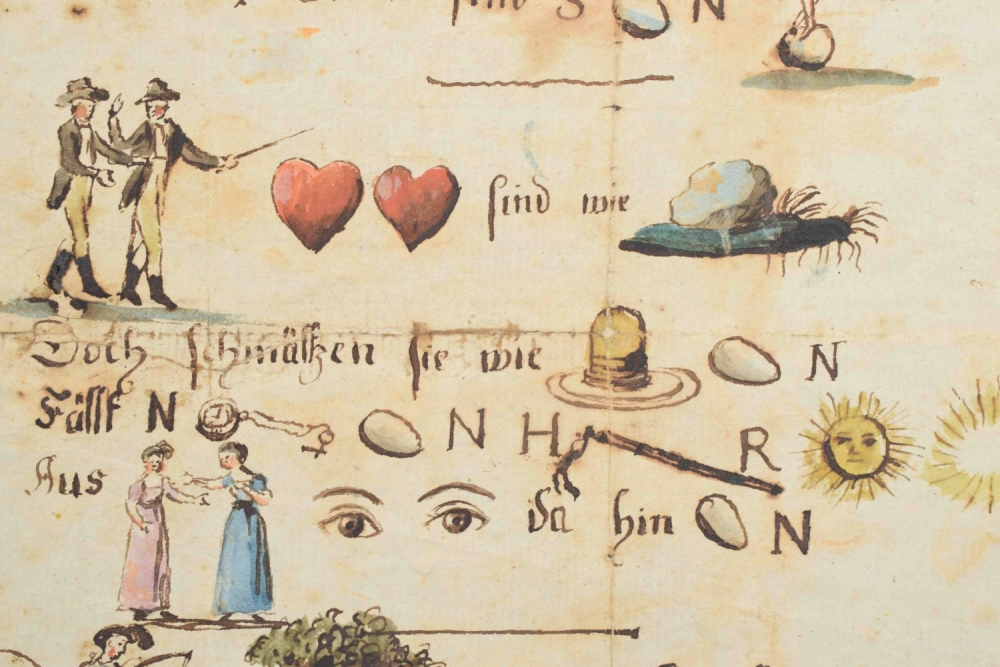 sind S N
sind wie
Doch schmältzen sie wie N
Fällt N N H R
Aus da hin N